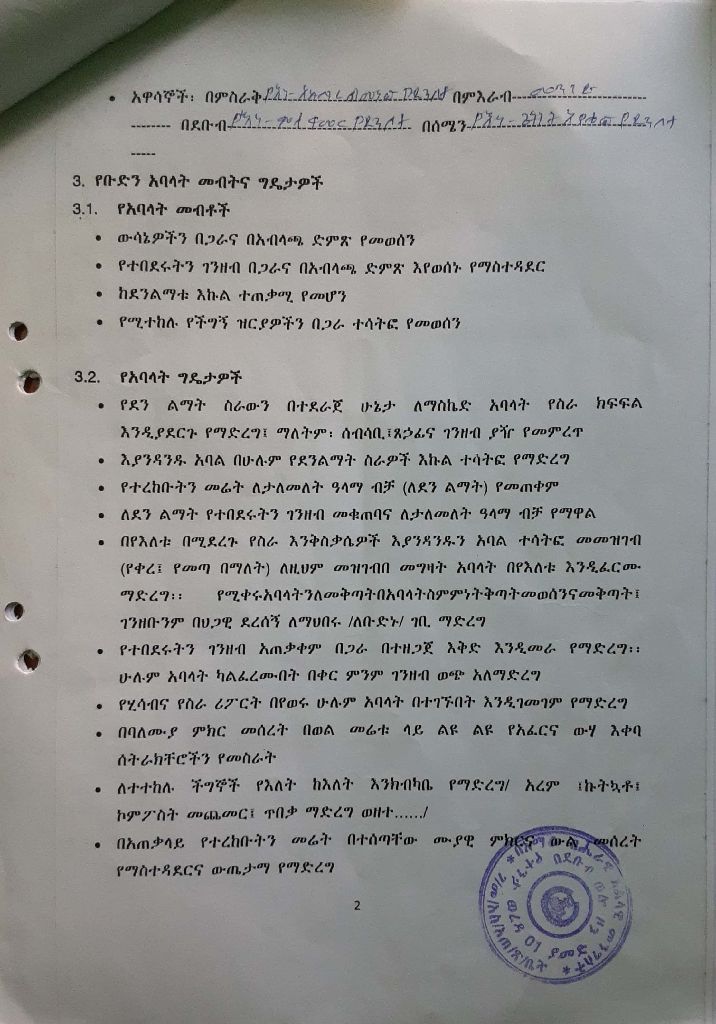 • አዋሳኞች፡ በምስራቅ በምእራብ-------------------------
-------- በደቡብ በሰሜን
-----
3. የቡድን አባላት መብትና ግዴታዎች
3.1. የአባላት መብቶች
• ውሳኔዎችን በጋራና በአብላጫ ድምጽ የመወሰን
• የተበደሩትን ገንዘብ በጋራና በአብላጫ ድምጽ እየወሰኑ የማስተዳደር
• ከደንልማቱ እኩል ተጠቃሚ የመሆን
• የሚተከሉ የችግኝ ዝርያዎችን በጋራ ተሳትፎ የመወሰን
3.2. የአባላት ግዴታዎች
• የደን ልማት ስራውን በተደራጀ ሁኔታ ለማስኬድ አባላት የስራ ክፍፍል
እንዲያደርጉ የማድረግ፤ ማለትም፡ ሰብሳቢ፤ጸኃፊና ገንዘብ ያዥ የመምረጥ
• እያንዳንዱ አባል በሁሉም የደንልማት ስራዎች እኩል ተሳትፎ የማድረግ
• የተረከቡትን መሬት ለታለመለት ዓላማ ብቻ (ለደን ልማት) የመጠቀም
• ለደን ልማት የተበደሩትን ገንዘብ መቁጠባና ለታለመለት ዓላማ ብቻ የማዋል
• በየእለቱ በሚደረጉ የስራ እንቅስቃሴዎች እያንዳንዱን አባል ተሳትፎ መመዝገብ
(የቀረ፤ የመጣ በማለት) ለዚህም መዝገብበ መግዛት አባላት በየእለቱ እንዲፈርሙ
ማድረግ፡፡ የሚቀሩአባላትንለመቅጣትበአባላትስምምነትቅጣትመወሰንናመቅጣት፤
ገንዘቡንም በህጋዊ ደረሰኝ ለማህበሩ /ለቡድኑ/ ገቢ ማድረግ
• የተበደሩትን ገንዘብ አጠቃቀም በጋራ በተዘጋጀ እቅድ እንዲመራ የማድረግ፡፡
ሁሉም አባላት ካልፈረሙበት በቀር ምንም ገንዘብ ወጭ አለማድረግ
• የሂሳብና የስራ ሪፖርት በየወሩ ሁሉም አባላት በተገኙበት እንዲገመገም የማድረግ
• በባለሙያ ምክር መሰረት በወል መሬቱ ላይ ልዩ ልዩ የአፈርና ውሃ እቀባ
ሰትራክቸሮችን የመስራት
• ለተተከሉ ችግኞች የእለት ከእለት እንክብካቤ የማድረግ/ አረም ፤ኩትኳቶ፤
ኮምፖስት መጨመር፤ ጥበቃ ማድረግ ወዘተ……/
• በአጠቃላይ የተረከቡትን መሬት በተሰጣቸው ሙያዊ ምክርና ውል መሰረት
የማስተዳደርና ውጤታማ የማድረግ
2